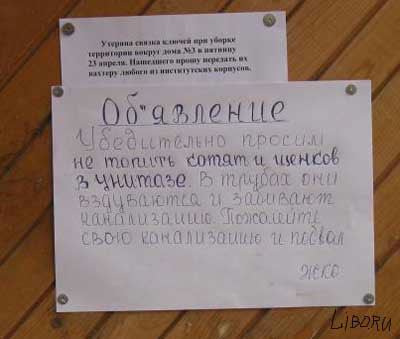 Утеряна связка ключей при уборке
территории вокруг дома №3 в пятницу
23 апреля. Нашедшего прошу передать их
вахтеру любого из институтских корпусов.
Об"явление
Убедительно просим
не топить котят и щенков
в унитазе. В трубах они
вздуваются и забивают
канализацию. Пожалейте
свою канализацию и подвал
ЖКО
LiBORU